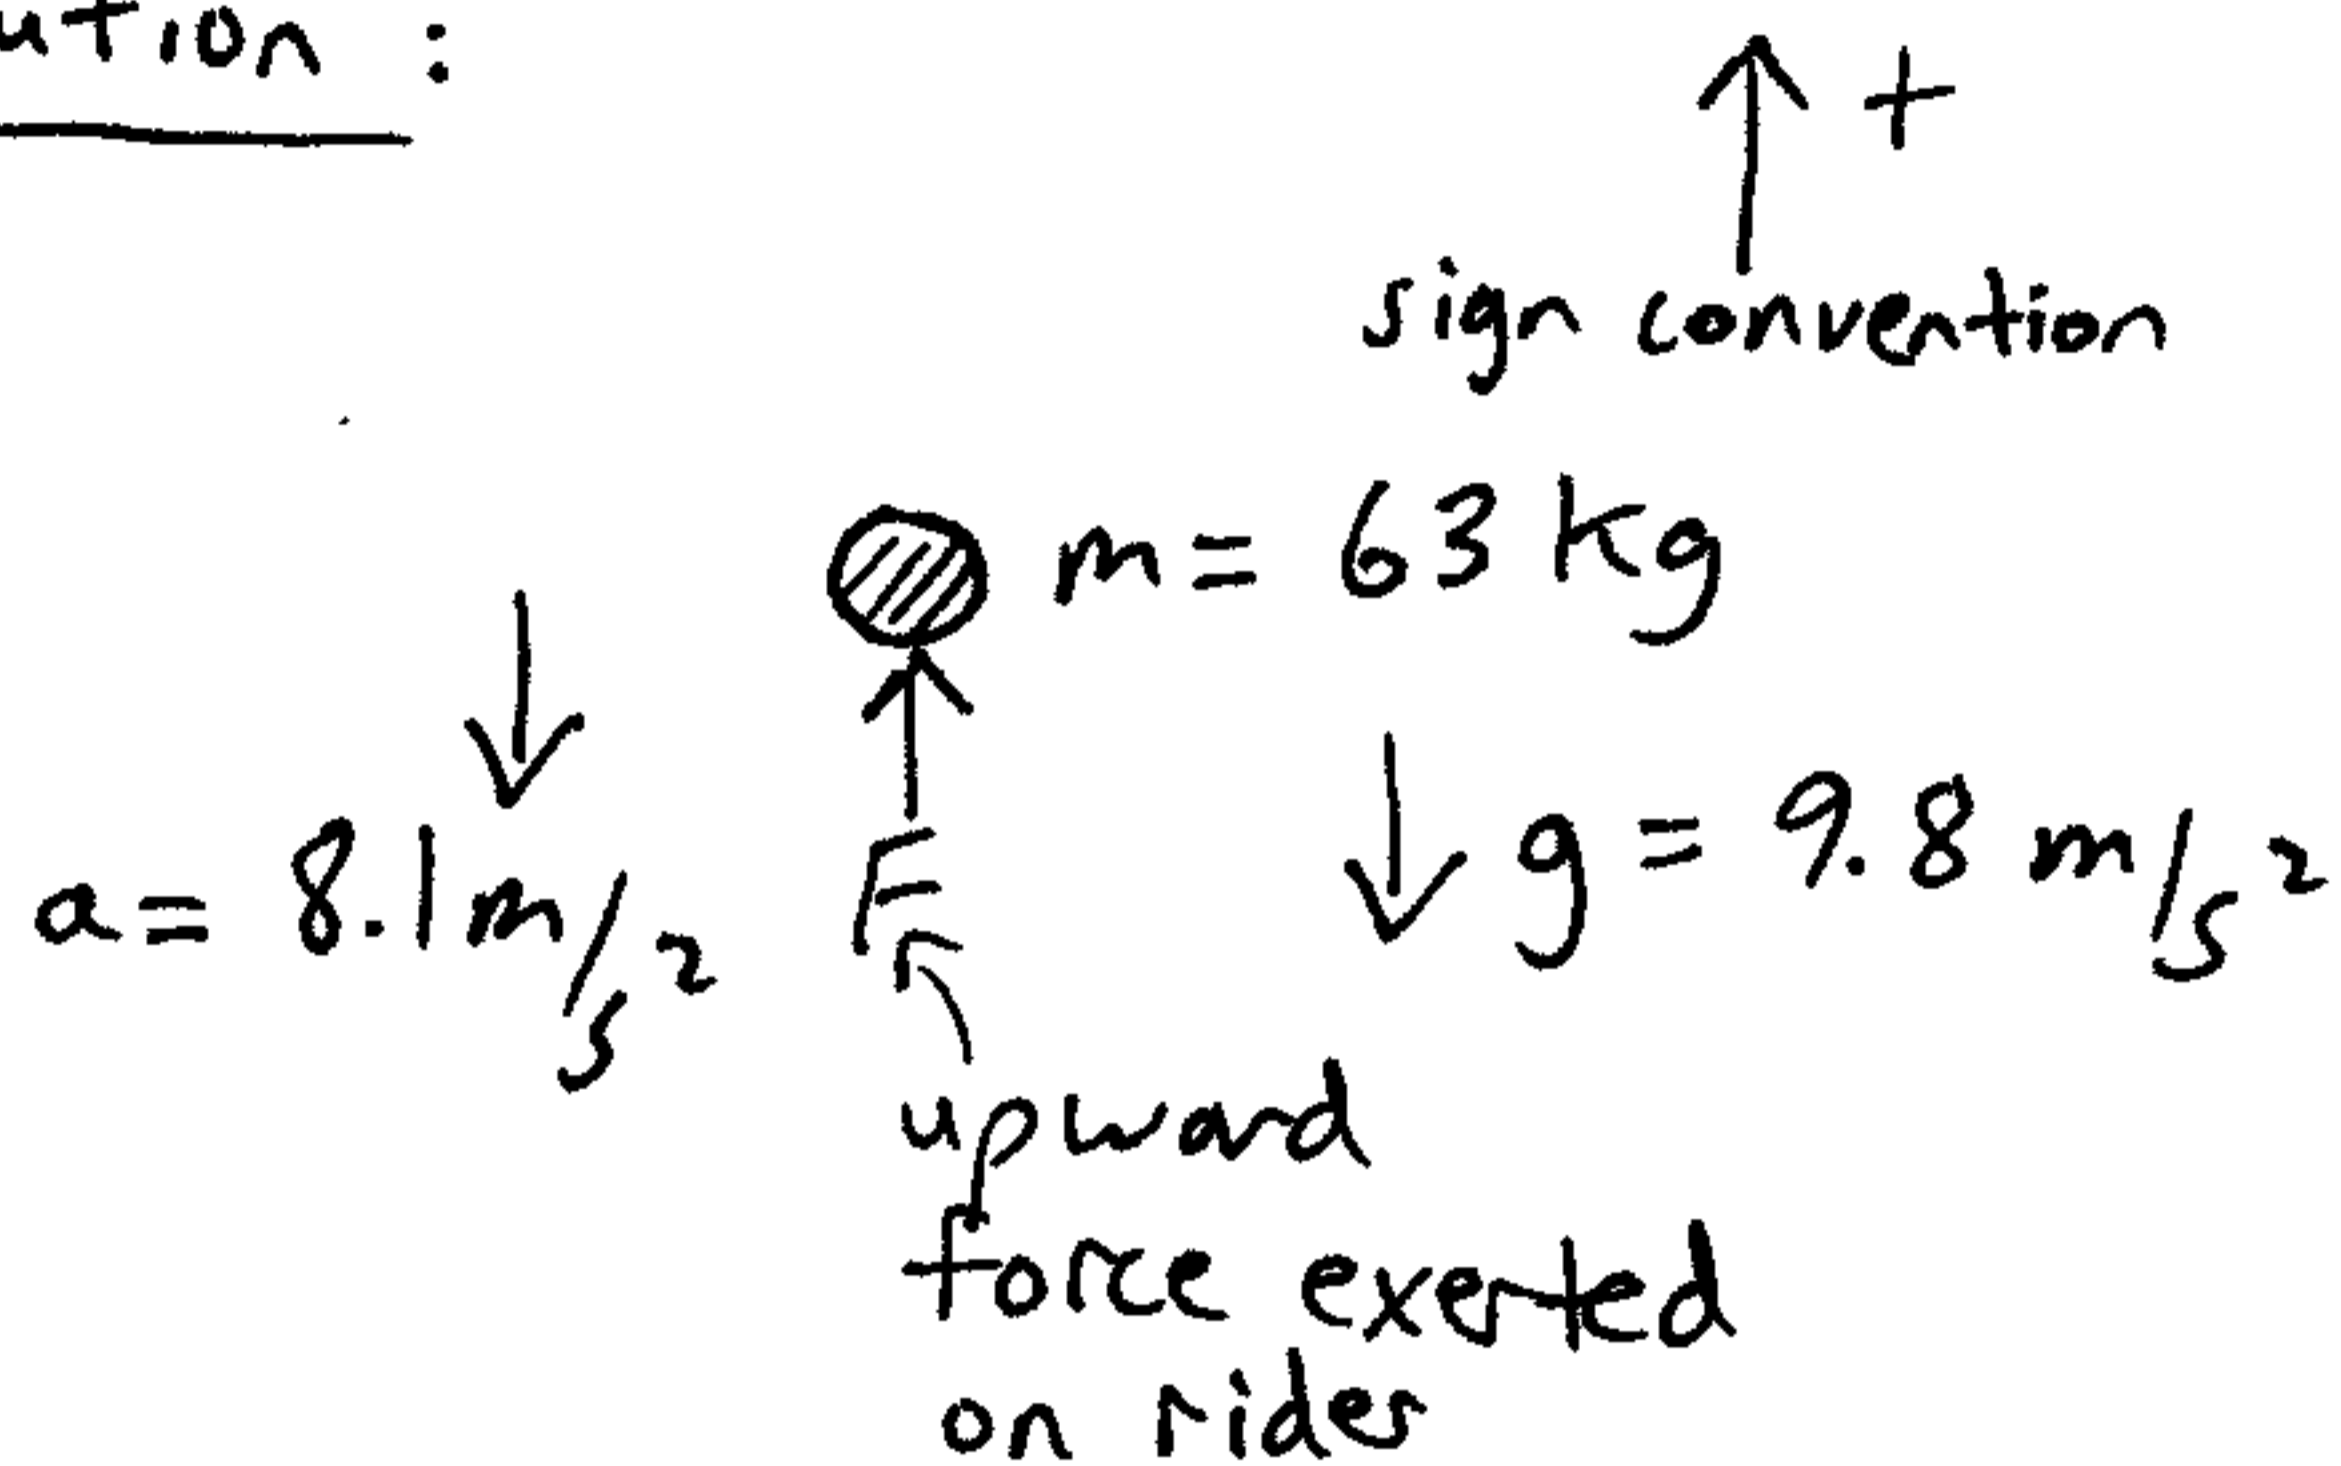 ution :
+
sign convention
m = 63 kg
a = 8.1 m/s²
F
g = 9.8 m/s²
upward
force exerted
on rider